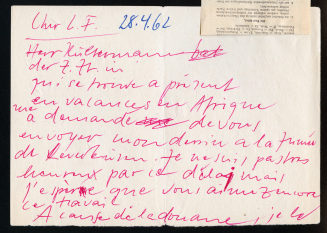 Cher L. F. 28.4.62
Herr Hültermann hat
der z. Zt. in
qui se trouve a présent
en vacances en Afrique
m'a demandé de vous
envoyer mon dessin a la
de Leverkusen. Je ne suis pas très
heureux par ce délai mais
j'espère que vous aimez encore
ce travail
A cause de la douane, je le